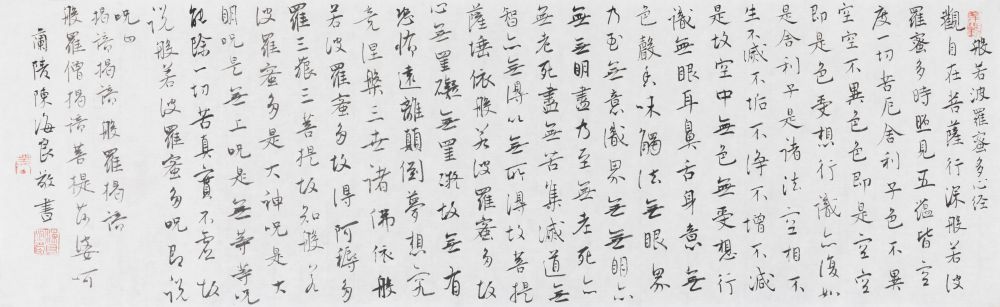 般若波羅蜜多心经
觀自在菩薩行深般若波
羅蜜多時照見五蕴皆空
度一切苦厄舍利子色不異
空空不異色色即是空空
即是色受想行識亦復如
是舍利子是諸法空相不
生不滅不垢不净不增不減
是故空中無色無受想行
識無眼耳鼻舌身意無
色聲香味觸法無眼界
乃至無意識界無無明亦
無無明盡乃至無老死亦
無老死盡無苦集滅道無
智亦無得以無所得故菩提
薩埵依般若波羅蜜多故
心無罣礙無罣礙故無有
恐怖遠離顛倒夢想究
竟涅槃三世諸佛依般
若波羅蜜多故得阿耨多
羅三藐三菩提故知般若
波羅蜜多是大神咒是大
明咒是無上咒是無等等咒
能除一切苦真實不虛故
說般若波羅蜜多咒即說
咒曰
揭諦揭諦般羅揭諦
般羅僧揭諦菩提莎婆訶
蘭陵陳海良敬書